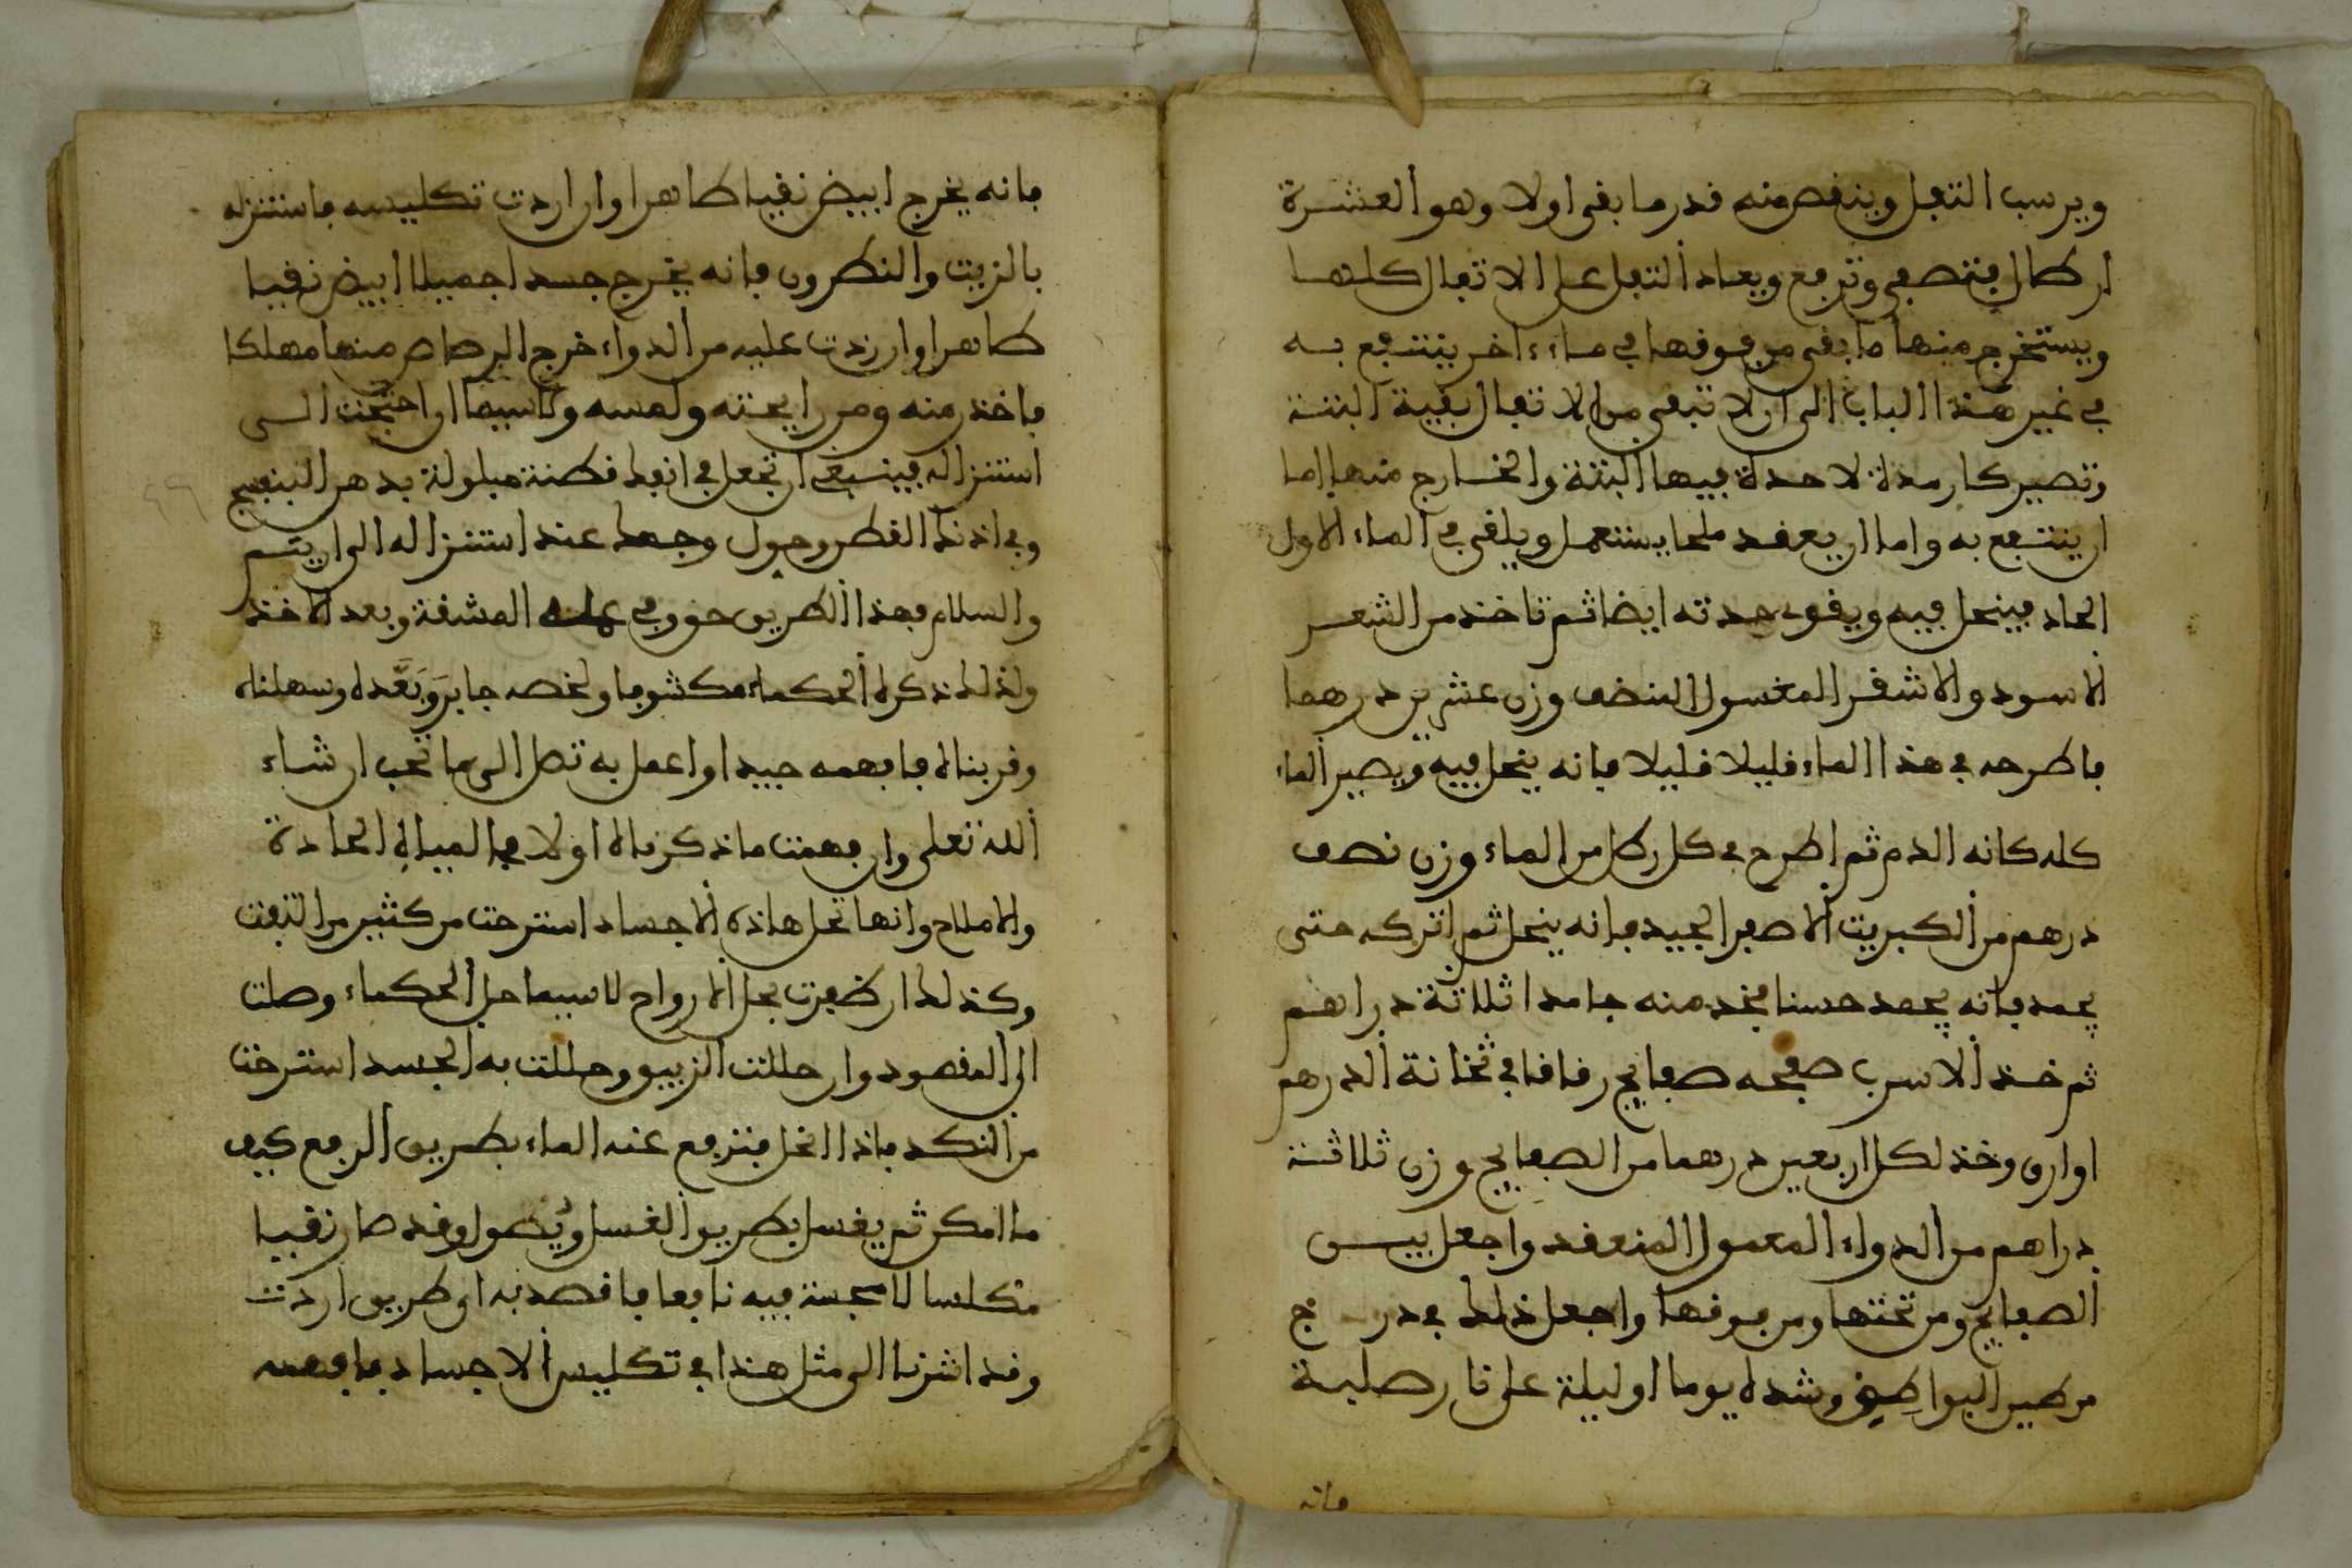 ويرسب الثفل وينقص منه قدر ما بقى اولا وهو العشرة
ارطال فتصفى وترفع ويعاد الثفل على الاثفال كلها
ويستخرج منها ما بقى من قوقها في ماء ءاخر ينتفع به
في غير هذا الباب الى ان لا تبقى من الاثفال بقية البتة
وتصير كارمدة لا حدة فيها البتة والخارج منها اما
ان ينتفع به واما ان يعقد ملحا يستعمل ويلقى في الماء الاول
الحاد فينحل فيه ويقوى حدته ايضا ثم تاخذ من الشعر
الاسود والاشقر المغسول المنضف وزن عشرين درهما
فاطرحه في هذا الماء قليلا قليلا فانه ينحل فيه ويصير الماء
كله كانه الدم ثم اطرح في كل رطل من الماء وزن نصف
درهم من الكبريت الاصفر الجيد فانه ينحل ثم اتركه حتى
يجمد فانه يجمد حسنا فخد منه جامدا ثلاثة دراهم
ثم خذ الاسرب صفحه صفايح رقاقا في ثخانة الدرهم
او ارق وخذ لكل اربعين درهما من الصفايح وزن ثلاثة
دراهم من الدواء المعمول المنعقد واجعل بيس
الصفايح ومن تحتها ومن فوقها واجعل ذلك في درج
من طين البواطق وشده يوما او ليلة على نار صلبة
فانه
فانه يخرج ابيض نقيا طاهرا وان اردت تكليسه فاستنزله
بالزيت والنطرون فانه يخرج جسدا جميلا ابيض نقيا
طاهرا وان زدت عليه من الدواء خرج الرصاص منها مهلكا
فاحذر منه ومن رايحته ولمسه ولاسيما ان احتجت الى
استنزاله فينبغي ان تجعل في انفك قطنة مبلولة بدهن البنفسج
وفي اذنك القطن وحول وجهك عند استنزاله الى ان يتم
والسلام فهذا الطريق حق وفي عمله المشقة وبعد الاخذ
ولذلك ذكره الحكماء مكشوفا ولخصه جابر وبعده وسهلناه
وقربناه فافهمه جيدا واعمل به تصل الى ما تحب ان شاء
الله تعلى وان فهمت ما ذكرناه اولا في المياه الحادة
والاملاح وانها تحل هاذه الاجساد استرحت من كثير من التعب
وكذلك ان ظفرت بحل الارواح لاسيما حل الحكماء وصلت
الى المقصود وان حللت الزيبق وحللت به الجسد استرحت
من النكد فاذا انحل فتزفع عنه الماء بطريق الرفع كيف
ما امكن ثم يغسل بطريق الغسل ويصول وقد صار نقيا
مكلسا لا محسة فيه نافعا فاقصد به اي طريق اردت
وقد اشرنا الى مثل هذا في تكليس الاجساد فافهمه